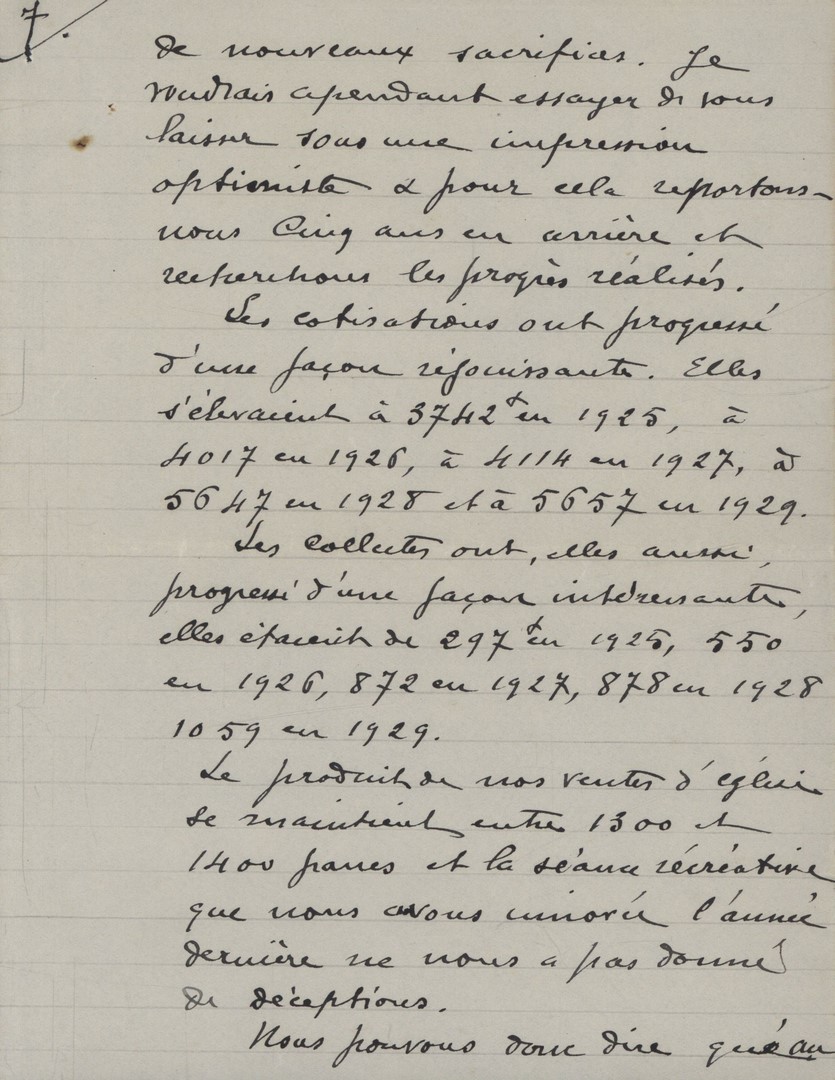 7.
de nouveaux sacrifices. Je
voudrais cependant essayer de vous
laisser sous une impression
optimiste & pour cela reportons-
nous Cinq ans en arrière et
recherchons les progrès réalisés.
Les cotisations ont progressé
d'une façon réjouissante. Elles
s'élevaient à 3742 f en 1925, à
4017 en 1926, à 4114 en 1927, à
5647 en 1928 et à 5657 en 1929.
Les collectes ont, elles aussi,
progressé d'une façon intéressante,
elles étaient de 297 f en 1925, 550
en 1926, 872 en 1927, 878 en 1928
1059 en 1929.
Le produit de nos ventes d'église
se maintient entre 1300 et
1400 francs et la séance récréative
que nous avons innovée l'année
dernière ne nous a pas donné
de déceptions.
Nous pouvons donc dire qu'au